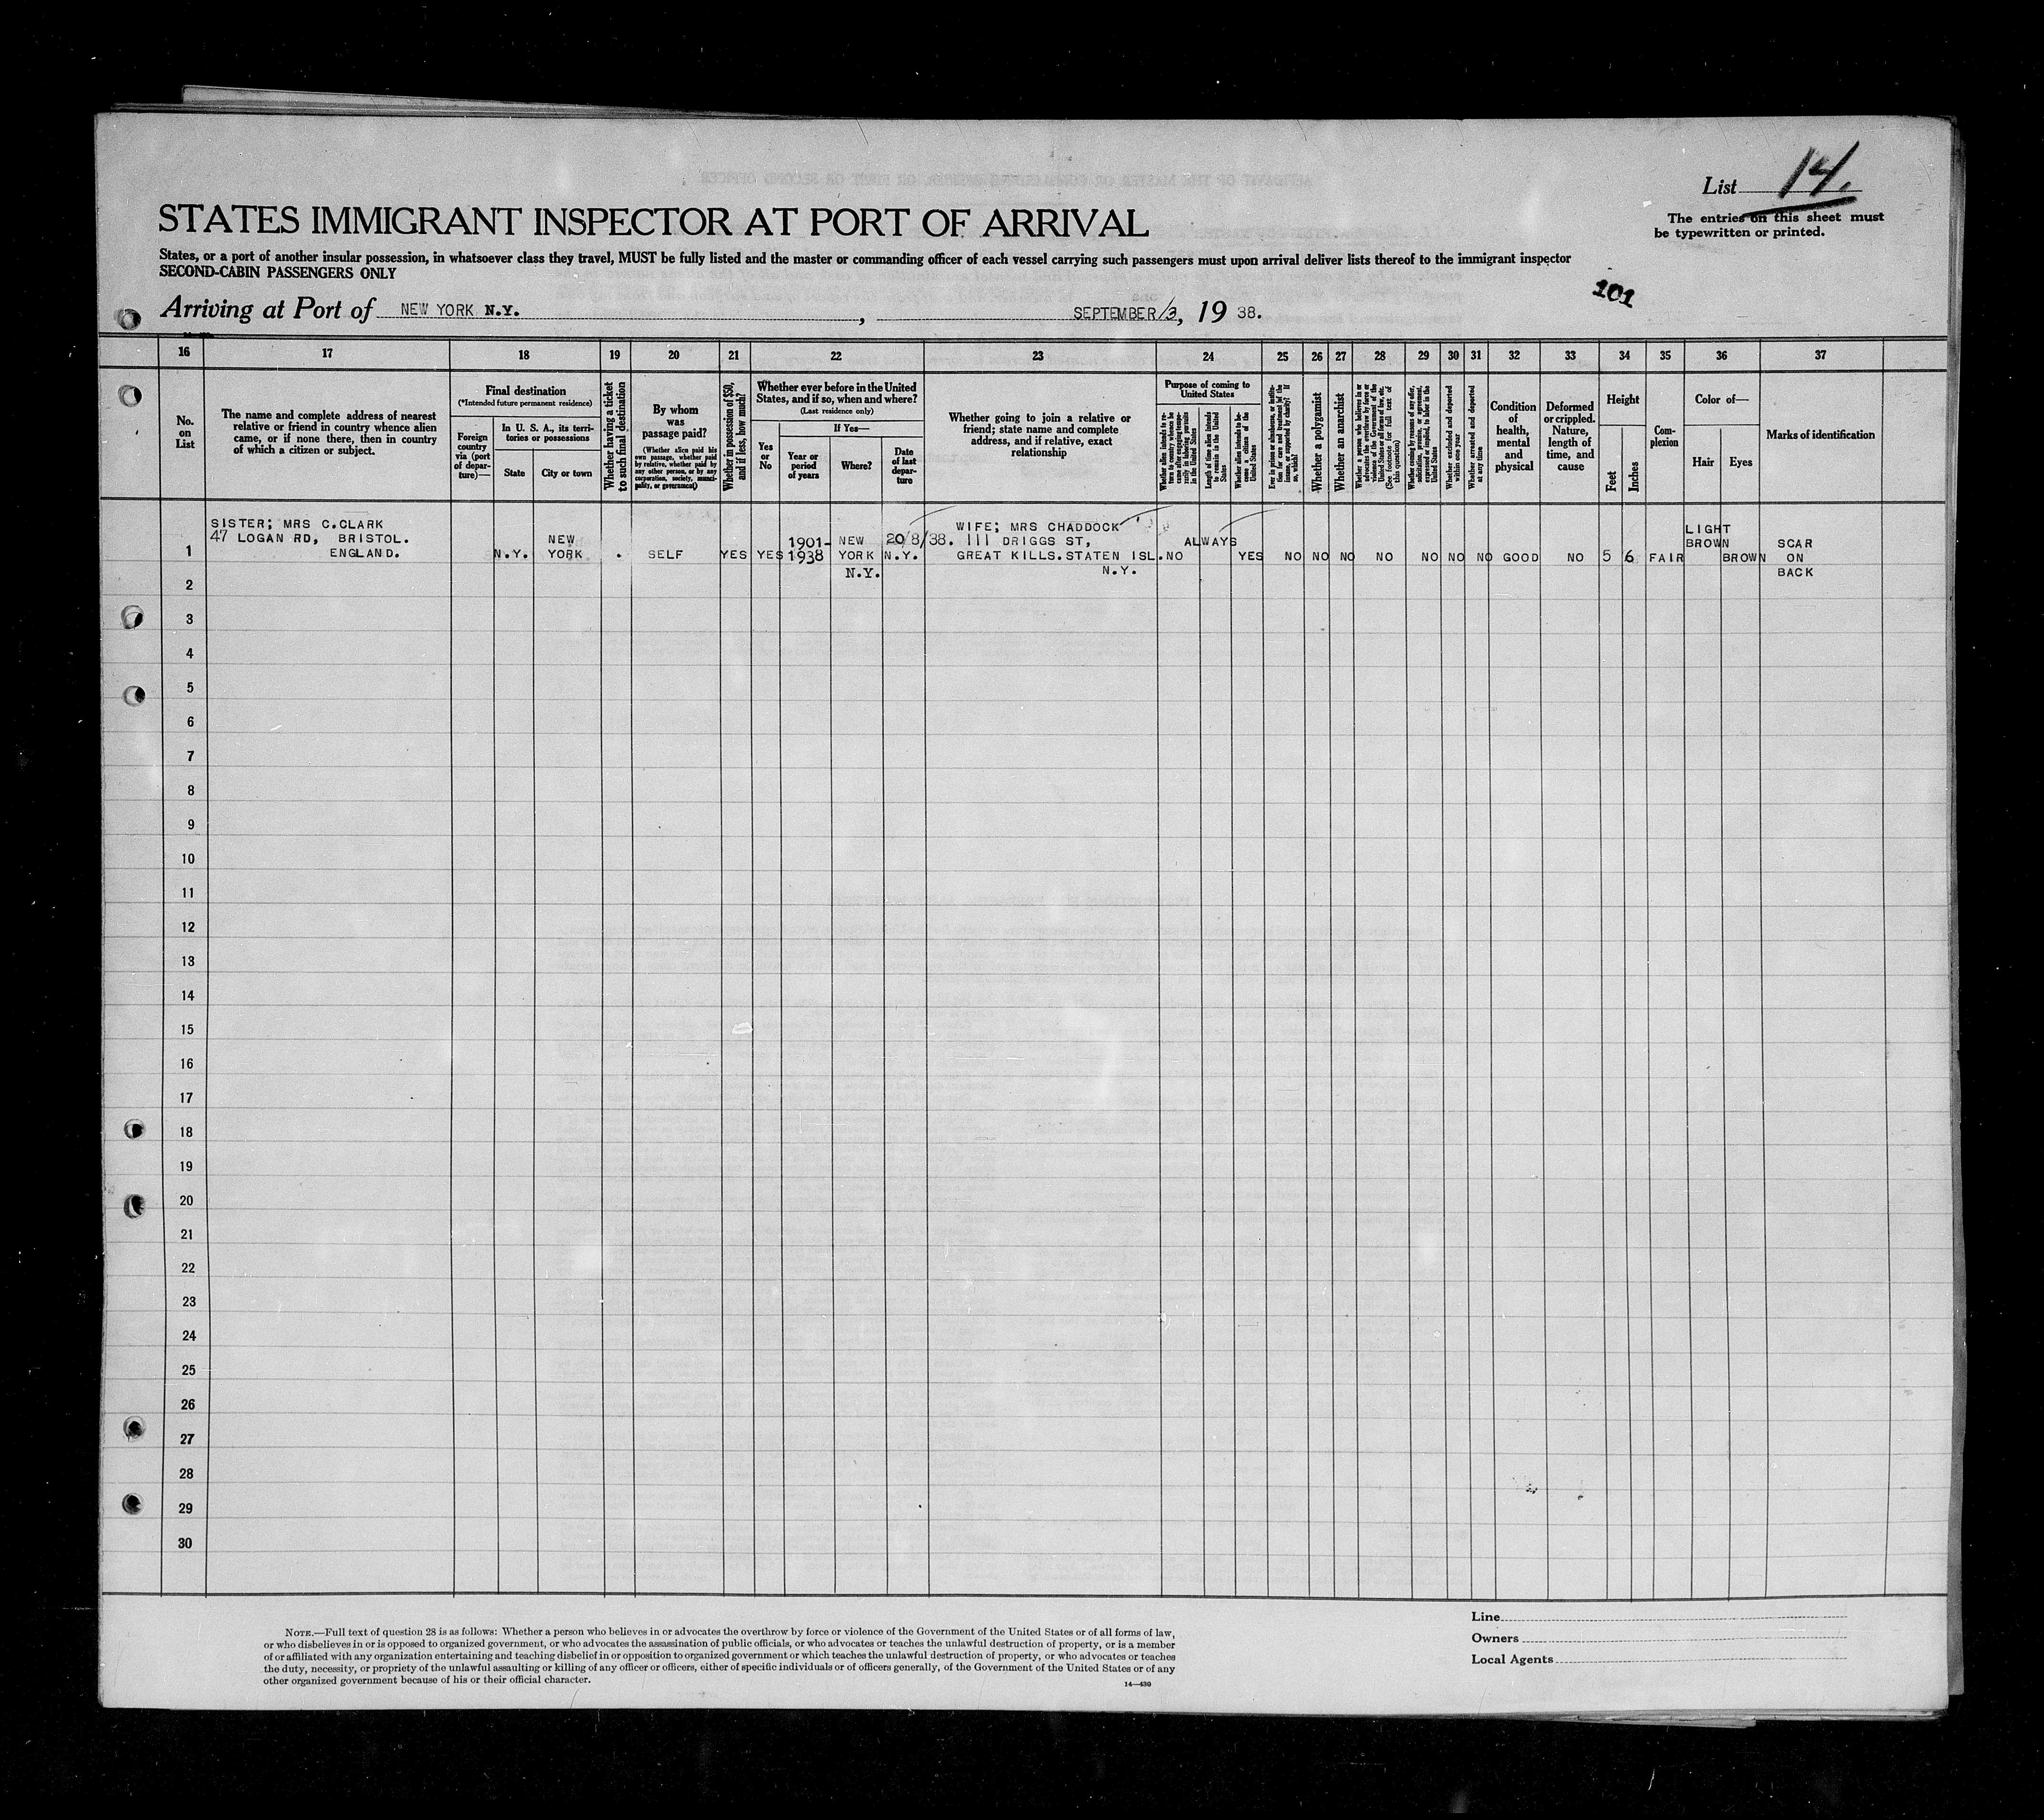 List 14.
The entries on this sheet must
be typewritten or printed.
STATES IMMIGRANT INSPECTOR AT PORT OF ARRIVAL
States, or a port of another insular possession, in whatsoever class they travel, MUST be fully listed and the master or commanding officer of each vessel carrying such passengers must upon arrival deliver lists thereof to the immigrant inspector
SECOND-CABIN PASSENGERS ONLY
101
Arriving at Port of NEW YORK N.Y. , SEPTEMBER 3, 19 38.
16 17 18 19 20 21 22 23 24 25 26 27 28 29 30 31 32 33 34 35 36 37
No.
on
List
The name and complete address of nearest
relative or friend in country whence alien
came, or if none there, then in country
of which a citizen or subject.
Final destination
(*Intended future permanent residence)
Foreign
country
via (port
of depar-
ture)—
In U. S. A., its terri-
tories or possessions
State
City or town
Whether having a ticket
to such final destination
By whom
was
passage paid?
(Whether alien paid his
own passage, whether paid
by relative, whether paid by
any other person, or by any
corporation, society, munici-
pality, or government)
Whether in possession of $50,
and if less, how much?
Whether ever before in the United
States, and if so, when and where?
(Last residence only)
Yes
or
No
If Yes—
Year or
period
of years
Where?
Date
of last
depar-
ture
Whether going to join a relative or
friend; state name and complete
address, and if relative, exact
relationship
Purpose of coming to
United States
Whether alien intends to re-
turn to country whence he
came after engaging tempo-
rarily in laboring pursuits
in the United States
Length of time alien intends
to remain in the United
States
Whether alien intends to be-
come a citizen of the
United States
Ever in prison or almshouse, or institu-
tion for care and treatment of the
insane, or supported by charity? If
so, which?
Whether a polygamist
Whether an anarchist
Whether a person who believes in or
advocates the overthrow by force or
violence of the Government of the
United States or all forms of law, etc.
(See footnote for full text of
this question)
Whether coming by reason of any offer,
solicitation, promise, or agreement,
expressed or implied, to labor in the
United States
Whether excluded and deported
within one year
Whether arrested and deported
at any time
Condition
of
health,
mental
and
physical
Deformed
or crippled.
Nature,
length of
time, and
cause
Height
Feet
Inches
Com-
plexion
Color of—
Hair
Eyes
Marks of identification
SISTER; MRS C.CLARK WIFE; MRS CHADDOCK LIGHT
47 LOGAN RD, BRISTOL. NEW 1901- NEW 20/8/38. 111 DRIGGS ST, ALWAYS BROWN SCAR
1 ENGLAND. N.Y. YORK . SELF YES YES 1938 YORK N.Y. GREAT KILLS.STATEN ISL. NO YES NO NO NO NO NO NO NO GOOD NO 5 6 FAIR BROWN ON
N.Y. N.Y. BACK
2
3
4
5
6
7
8
9
10
11
12
13
14
15
16
17
18
19
20
21
22
23
24
25
26
27
28
29
30
NOTE.—Full text of question 28 is as follows: Whether a person who believes in or advocates the overthrow by force or violence of the Government of the United States or of all forms of law,
or who disbelieves in or is opposed to organized government, or who advocates the assassination of public officials, or who advocates or teaches the unlawful destruction of property, or is a member
of or affiliated with any organization entertaining and teaching disbelief in or opposition to organized government or which teaches the unlawful destruction of property, or who advocates or teaches
the duty, necessity, or propriety of the unlawful assaulting or killing of any officer or officers, either of specific individuals or of officers generally, of the Government of the United States or of any
other organized government because of his or their official character.
14—430
Line
Owners
Local Agents